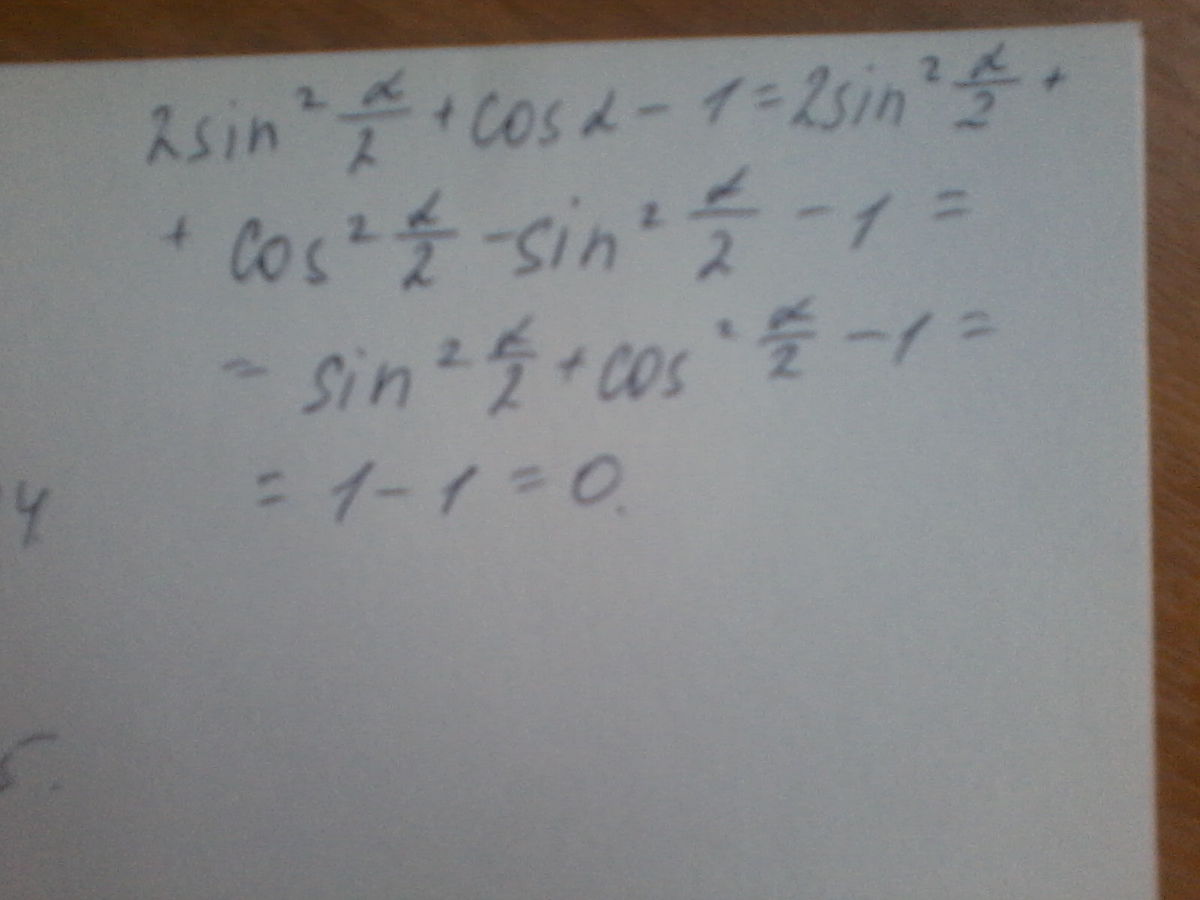 2sin² α/2 + cos α - 1 = 2sin² α/2 +
+ cos² α/2 - sin² α/2 - 1 =
= sin² α/2 + cos² α/2 - 1 =
= 1 - 1 = 0.
4
5.